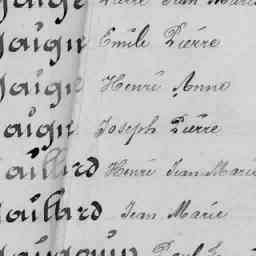 Pierre Jean Marie
Jaigu Emile Pierre
Jaigu Henri Anne
Jaigu Joseph Pierre
Jaillard Henri Jean Marie
Jaillard Jean Marie